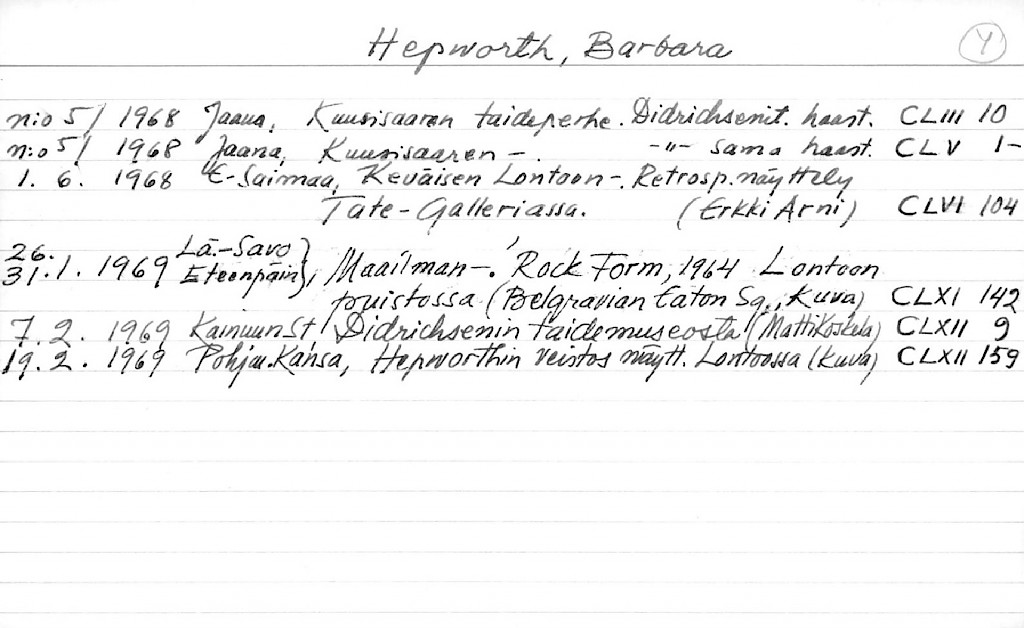 Hepworth, Barbara Y
n:o 5/ 1968 Jaana, Kuusisaaren taideperhe. Didrichsenit. haast. CLIII 10
n:o 5/ 1968 Jaana, Kuusisaaren -. -"- sama haast. CLV 1-
1. 6. 1968 E-Saimaa, Keväisen Lontoon -. Retrosp. näyttely
Tate-Galleriassa. (Erkki Arni) CLVI 104
26. Lä.-Savo }
31.1. 1969 Eteenpäin }, Maailman -. 'Rock Form, 1964 Lontoon
puistossa (Belgravian Eaton Sq., Kuva) CLXI 142
7. 2. 1969 Kainuun St / Didrichsenin taidemuseosta (Matti Koskela) CLXII 9
19. 2. 1969 Pohjan Kansa, Hepworthin veistos näytt. Lontoossa (kuva) CLXII 159